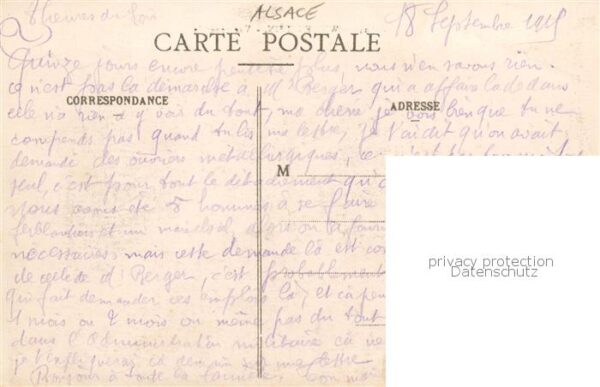 7 heures du soir
ALSACE
18 Septembre 1915
CARTE POSTALE
Quinze jours encore peut être plus, nous n'en savons rien.
ce n'est pas la démarche à Mr Berger qui a affaire là dedans
CORRESPONDANCE
ADRESSE
elle n'a rien à y voir du tout, ma chérie je vois bien que tu ne
comprends pas quand tu lis ma lettre, je t'ai dit qu'on avait
demandé des ouvriers métallurgiques, ce n'est pas
M
seul, c'est pour tout le détachement qu'
nous avons été 5 hommes à se faire
ferblantiers et un maréchal, alors on a
nécessaires mais cette demande là est
de celle de Mr Berger, c'est probablement
qui fait demander ces emplois là, et ça peut
1 mois ou 2 mois ou même pas du tout
dans l'Administration militaire ça ne
je t'expliquerai ça demain sur une lettre
Bonjour à toute la famille bon
privacy protection
Datenschutz